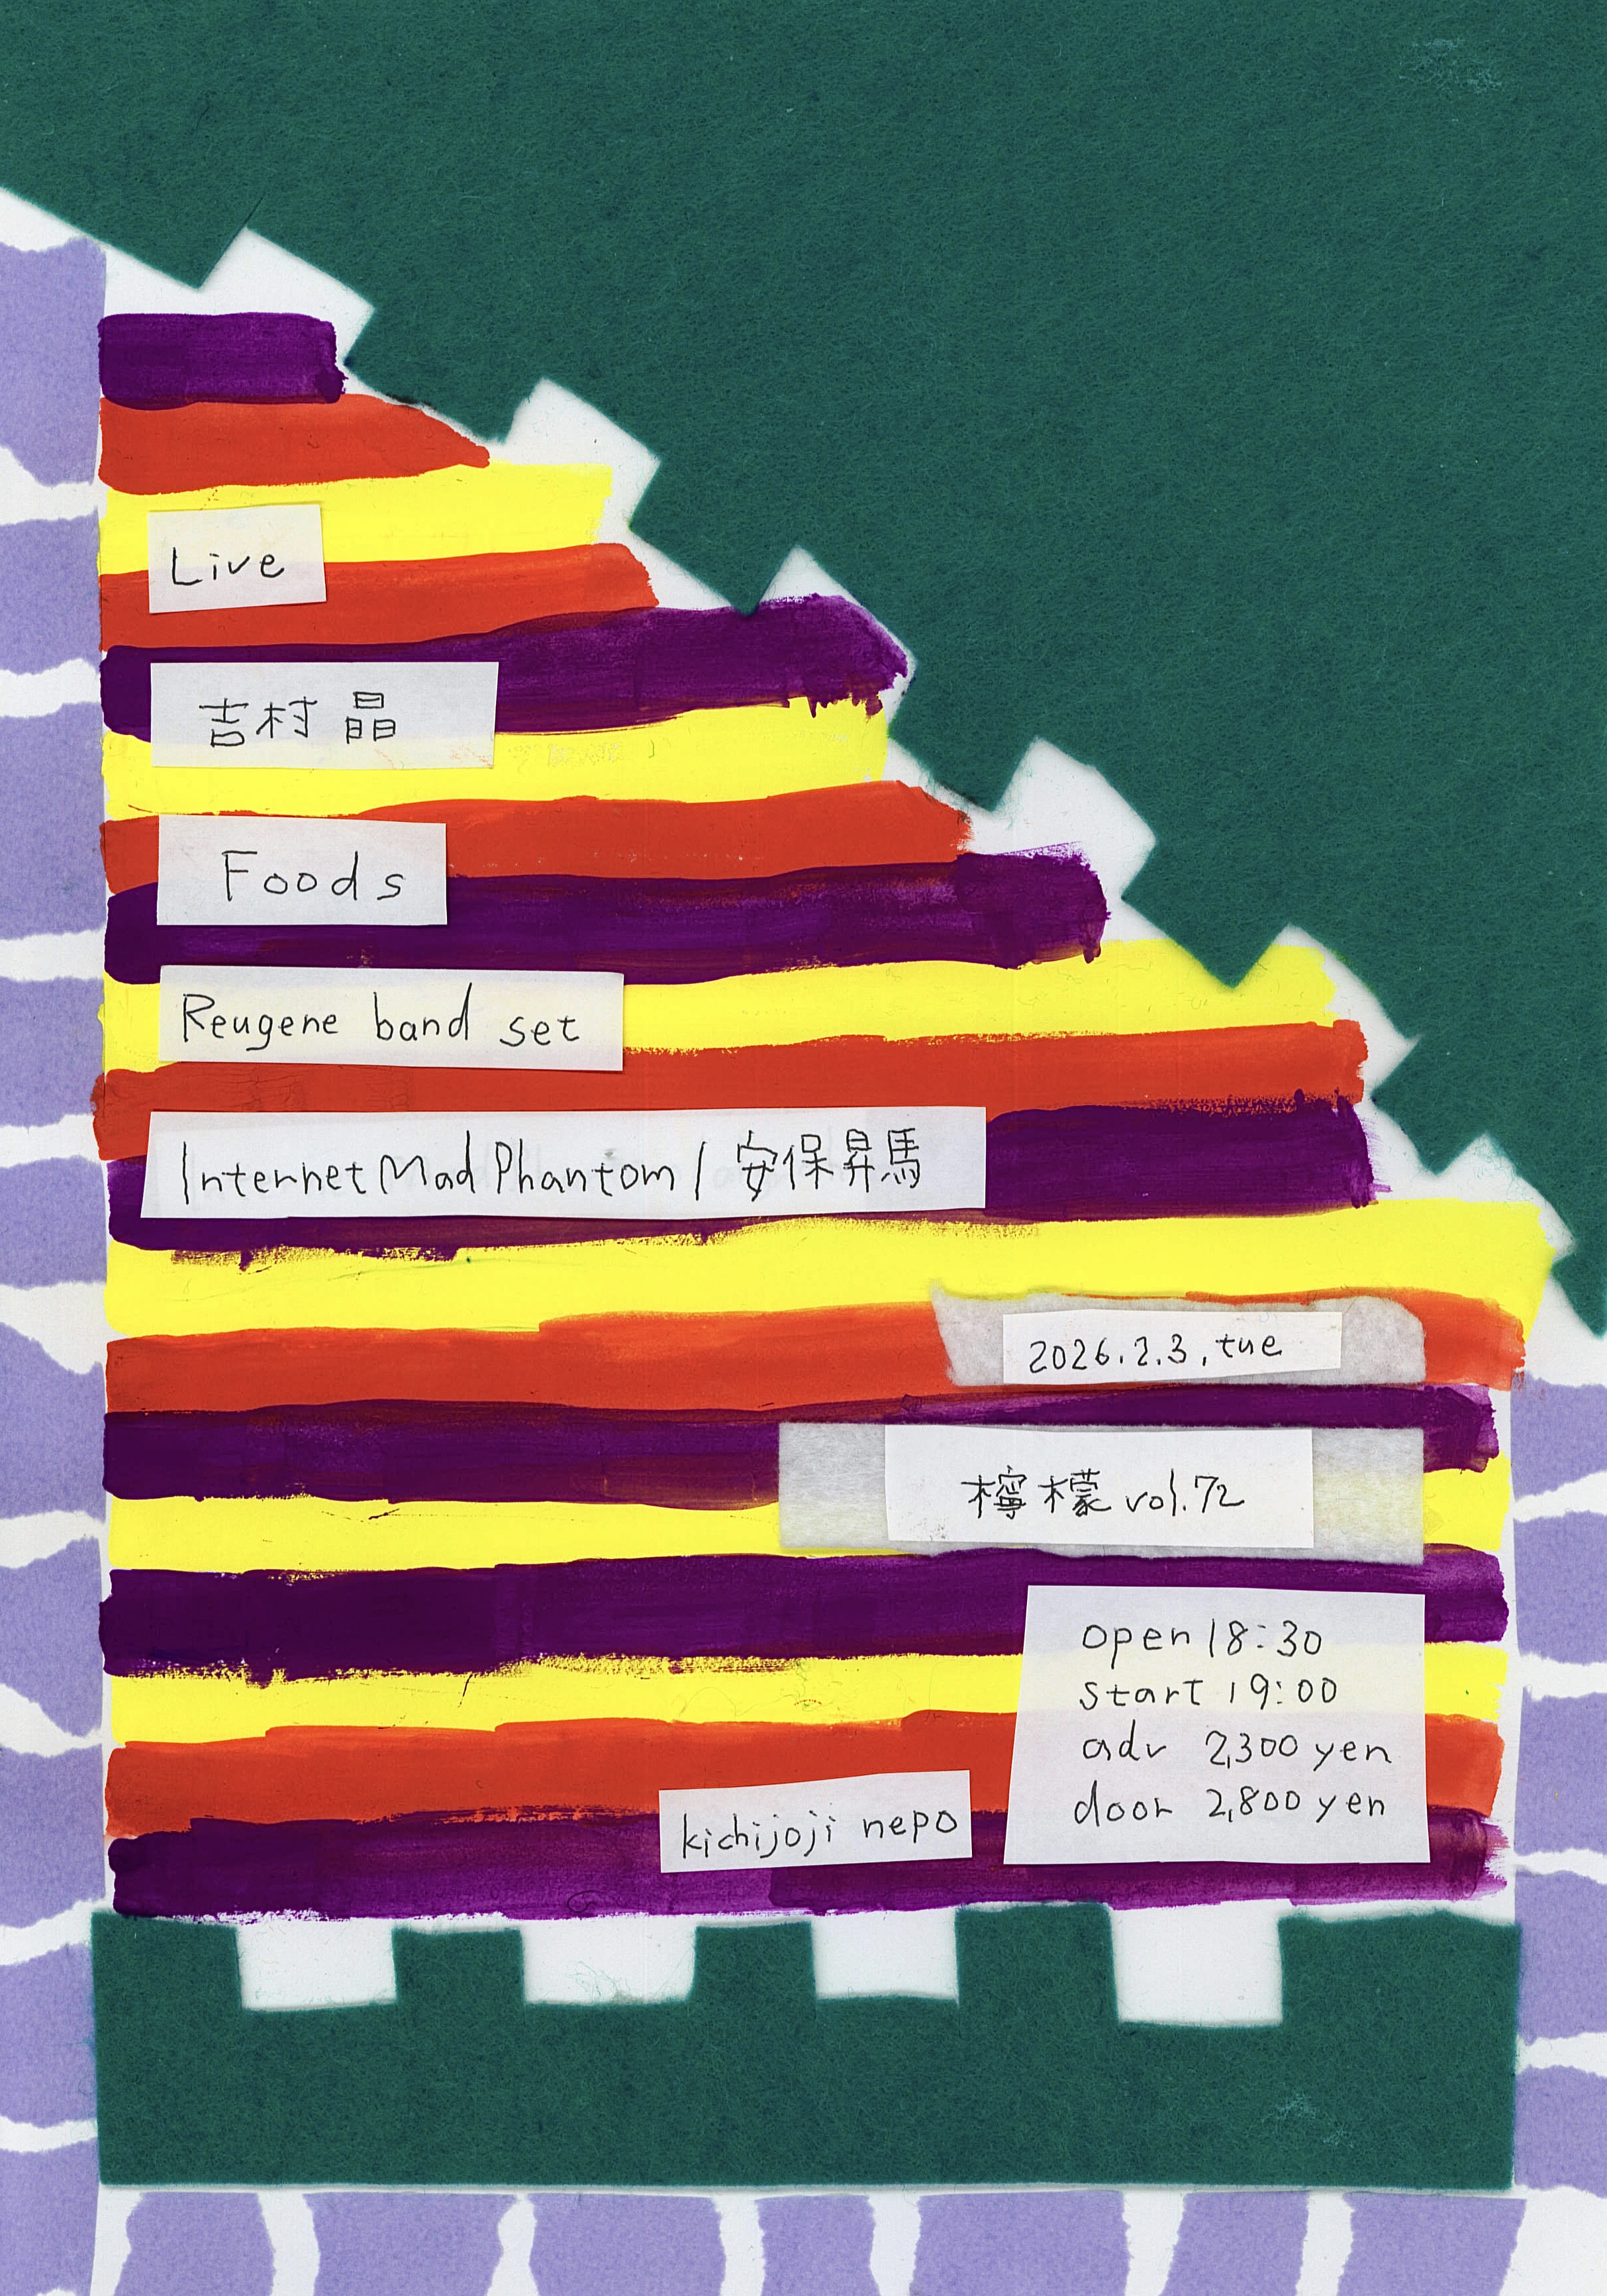 Live
吉村 晶
Foods
Reugene band set
InternetMadPhantom / 安保昇馬
2026.2.3.tue
檸檬 vol.72
open 18:30
start 19:00
adv 2,300 yen
door 2,800 yen
kichijoji nepo